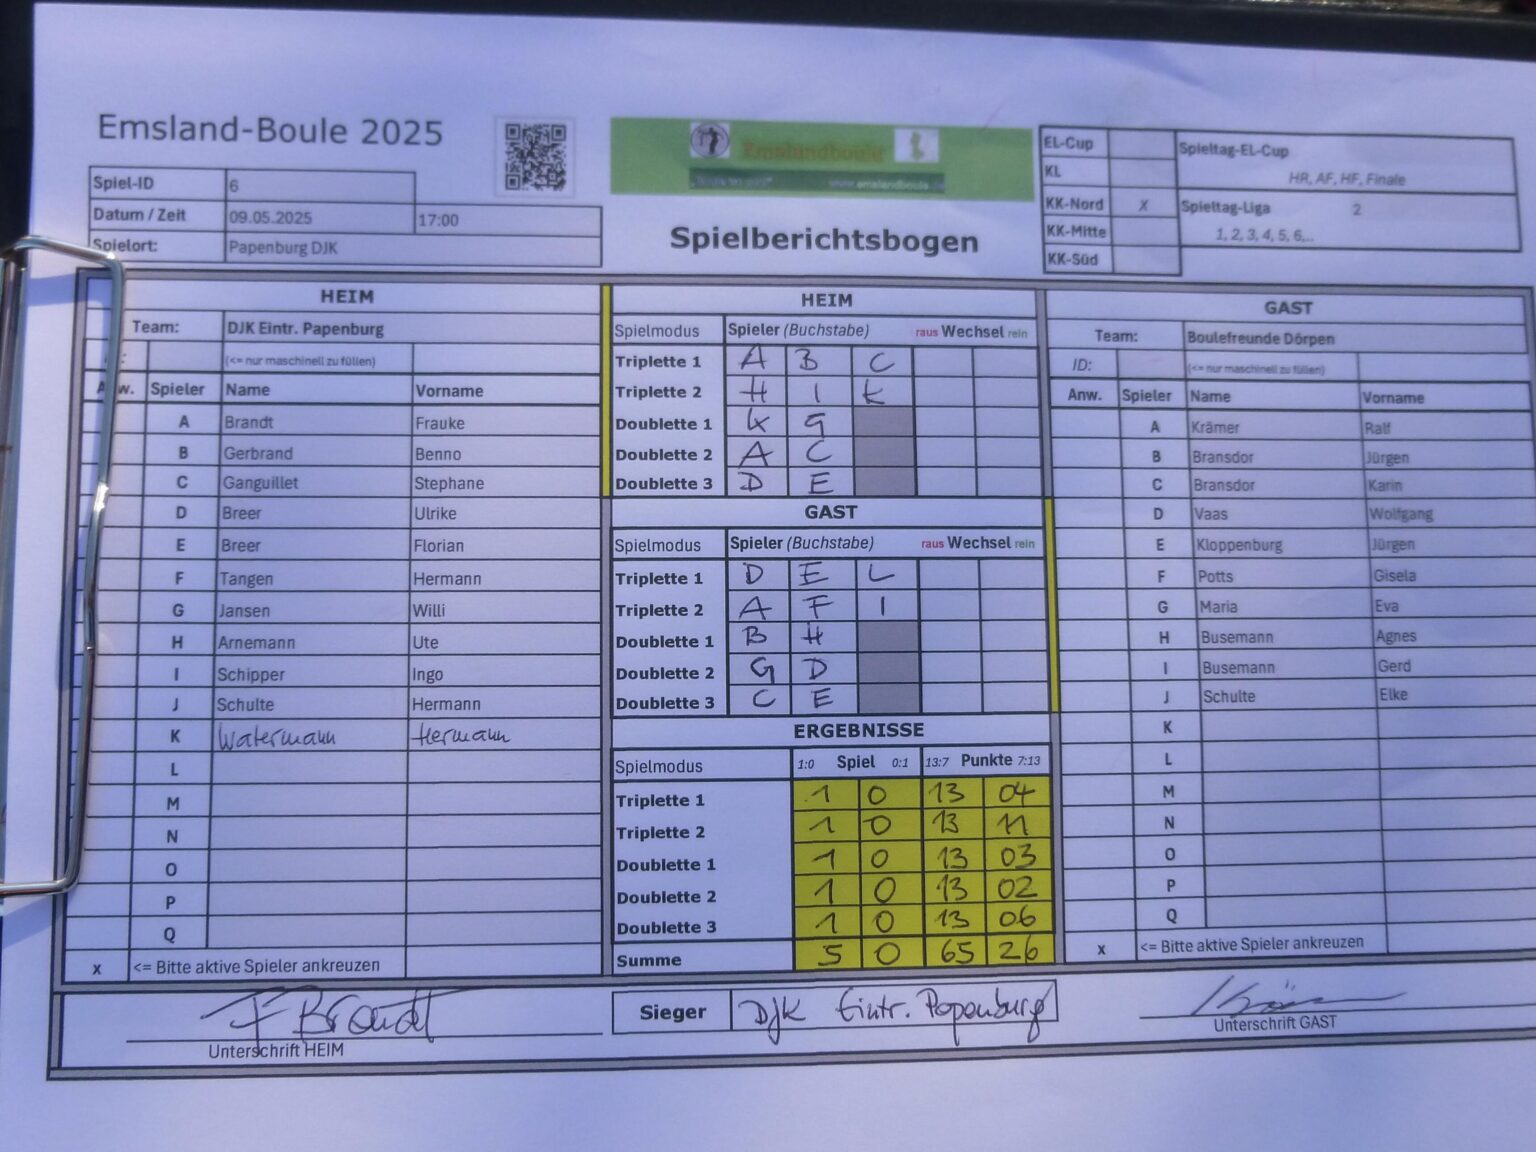 Emsland-Boule 2025
Spiel-ID 6
Datum / Zeit 09.05.2025 17:00
Spielort: Papenburg DJK
Emslandboule
www.emslandboule.de
Spielberichtsbogen
EL-Cup Spieltag-EL-Cup
KL HR, AF, HF, Finale
KK-Nord x Spieltag-Liga 2
KK-Mitte 1, 2, 3, 4, 5, 6,..
KK-Süd
HEIM
Team: DJK Eintr. Papenburg
(<= nur maschinell zu füllen)
Spieler Name Vorname
A Brandt Frauke
B Gerbrand Benno
C Ganguillet Stephane
D Breer Ulrike
E Breer Florian
F Tangen Hermann
G Jansen Willi
H Arnemann Ute
I Schipper Ingo
J Schulte Hermann
K Watermann Hermann
L
M
N
O
P
Q
x <= Bitte aktive Spieler ankreuzen
HEIM
Spielmodus Spieler (Buchstabe) raus Wechsel rein
Triplette 1 A B C
Triplette 2 H I K
Doublette 1 G
Doublette 2 A C
Doublette 3 D E
GAST
Spielmodus Spieler (Buchstabe) raus Wechsel rein
Triplette 1 D E L
Triplette 2 A F I
Doublette 1 B H
Doublette 2 G D
Doublette 3 C E
ERGEBNISSE
Spielmodus 1:0 Spiel 0:1 13:7 Punkte 7:13
Triplette 1 1 0 13 04
Triplette 2 1 0 13 11
Doublette 1 1 0 13 03
Doublette 2 1 0 13 02
Doublette 3 1 0 13 06
Summe 5 0 65 26
GAST
Team: Boulefreunde Dörpen
ID: (<= nur maschinell zu füllen)
Anw. Spieler Name Vorname
A Krämer Ralf
B Bransdor Jürgen
C Bransdor Karin
D Vaas Wolfgang
E Kloppenburg Jürgen
F Potts Gisela
G Maria Eva
H Busemann Agnes
I Busemann Gerd
J Schulte Elke
K
L
M
N
O
P
Q
x <= Bitte aktive Spieler ankreuzen
F Brandt
Unterschrift HEIM
Sieger DJK Eintr. Papenburg
Unterschrift GAST